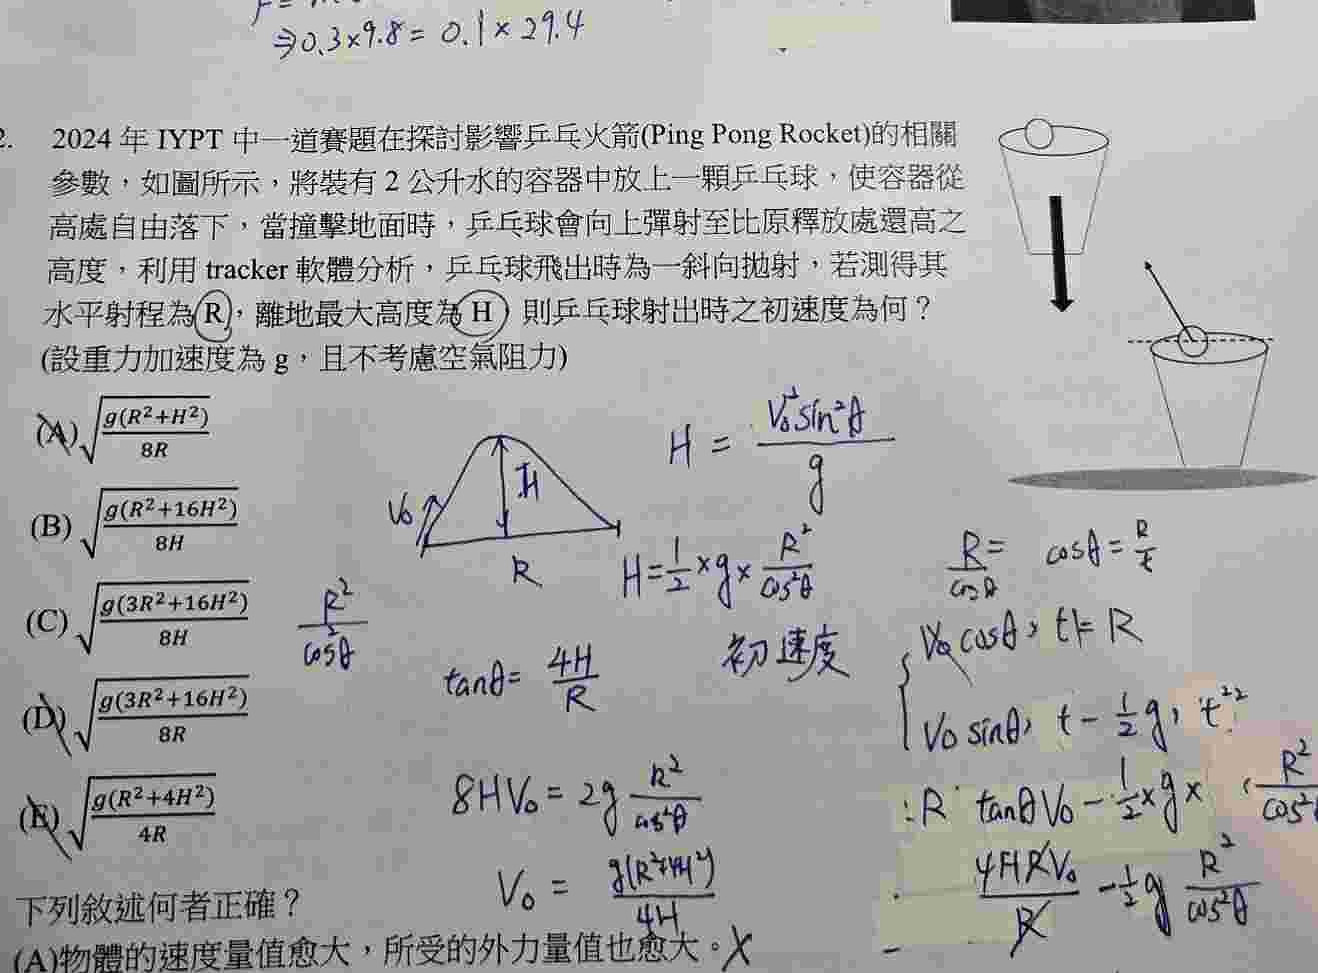 ⇒0.3×9.8= 0.1×29.4
2. 2024 年 IYPT 中一道賽題在探討影響乒乓火箭(Ping Pong Rocket)的相關
參數，如圖所示，將裝有 2 公升水的容器中放上一顆乒乓球，使容器從
高處自由落下，當撞擊地面時，乒乓球會向上彈射至比原釋放處還高之
高度，利用 tracker 軟體分析，乒乓球飛出時為一斜向拋射，若測得其
水平射程為 R，離地最大高度為 H，則乒乓球射出時之初速度為何？
(設重力加速度為 g，且不考慮空氣阻力)
(A) √(g(R²+H²)/8R)
(B) √(g(R²+16H²)/8H)
(C) √(g(3R²+16H²)/8H)
(D) √(g(3R²+16H²)/8R)
(E) √(g(R²+4H²)/4R)
V₀ H R
H = V₀²sin²θ/g
H=1/2×g×R²/cos²θ
R²/cos²θ
tanθ= 4H/R
初速度
8HV₀ = 2g R²/cos²θ
V₀ = g(R²+4H²)/4H
R/cosθ = cosθ=R/t
V₀cosθ, t = R
V₀ sinθ, t - 1/2 g, t²
R tanθV₀ - 1/2×g× R²/cos²θ
4HRV₀/R - 1/2 g R²/cos²θ
下列敘述何者正確？
(A)物體的速度量值愈大，所受的外力量值也愈大。X